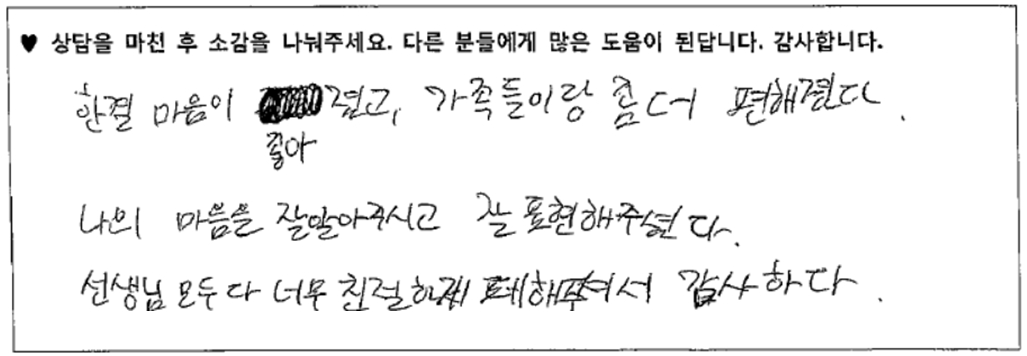 ♥ 상담을 마친 후 소감을 나눠주세요. 다른 분들에게 많은 도움이 된답니다. 감사합니다.
한결 마음이 졌고, 가족들이랑 좀 더 편해졌다.
좋아
나의 마음을 잘알아주시고 잘 표현해주셨다.
선생님 모두다 너무 친절하게 감사하다.